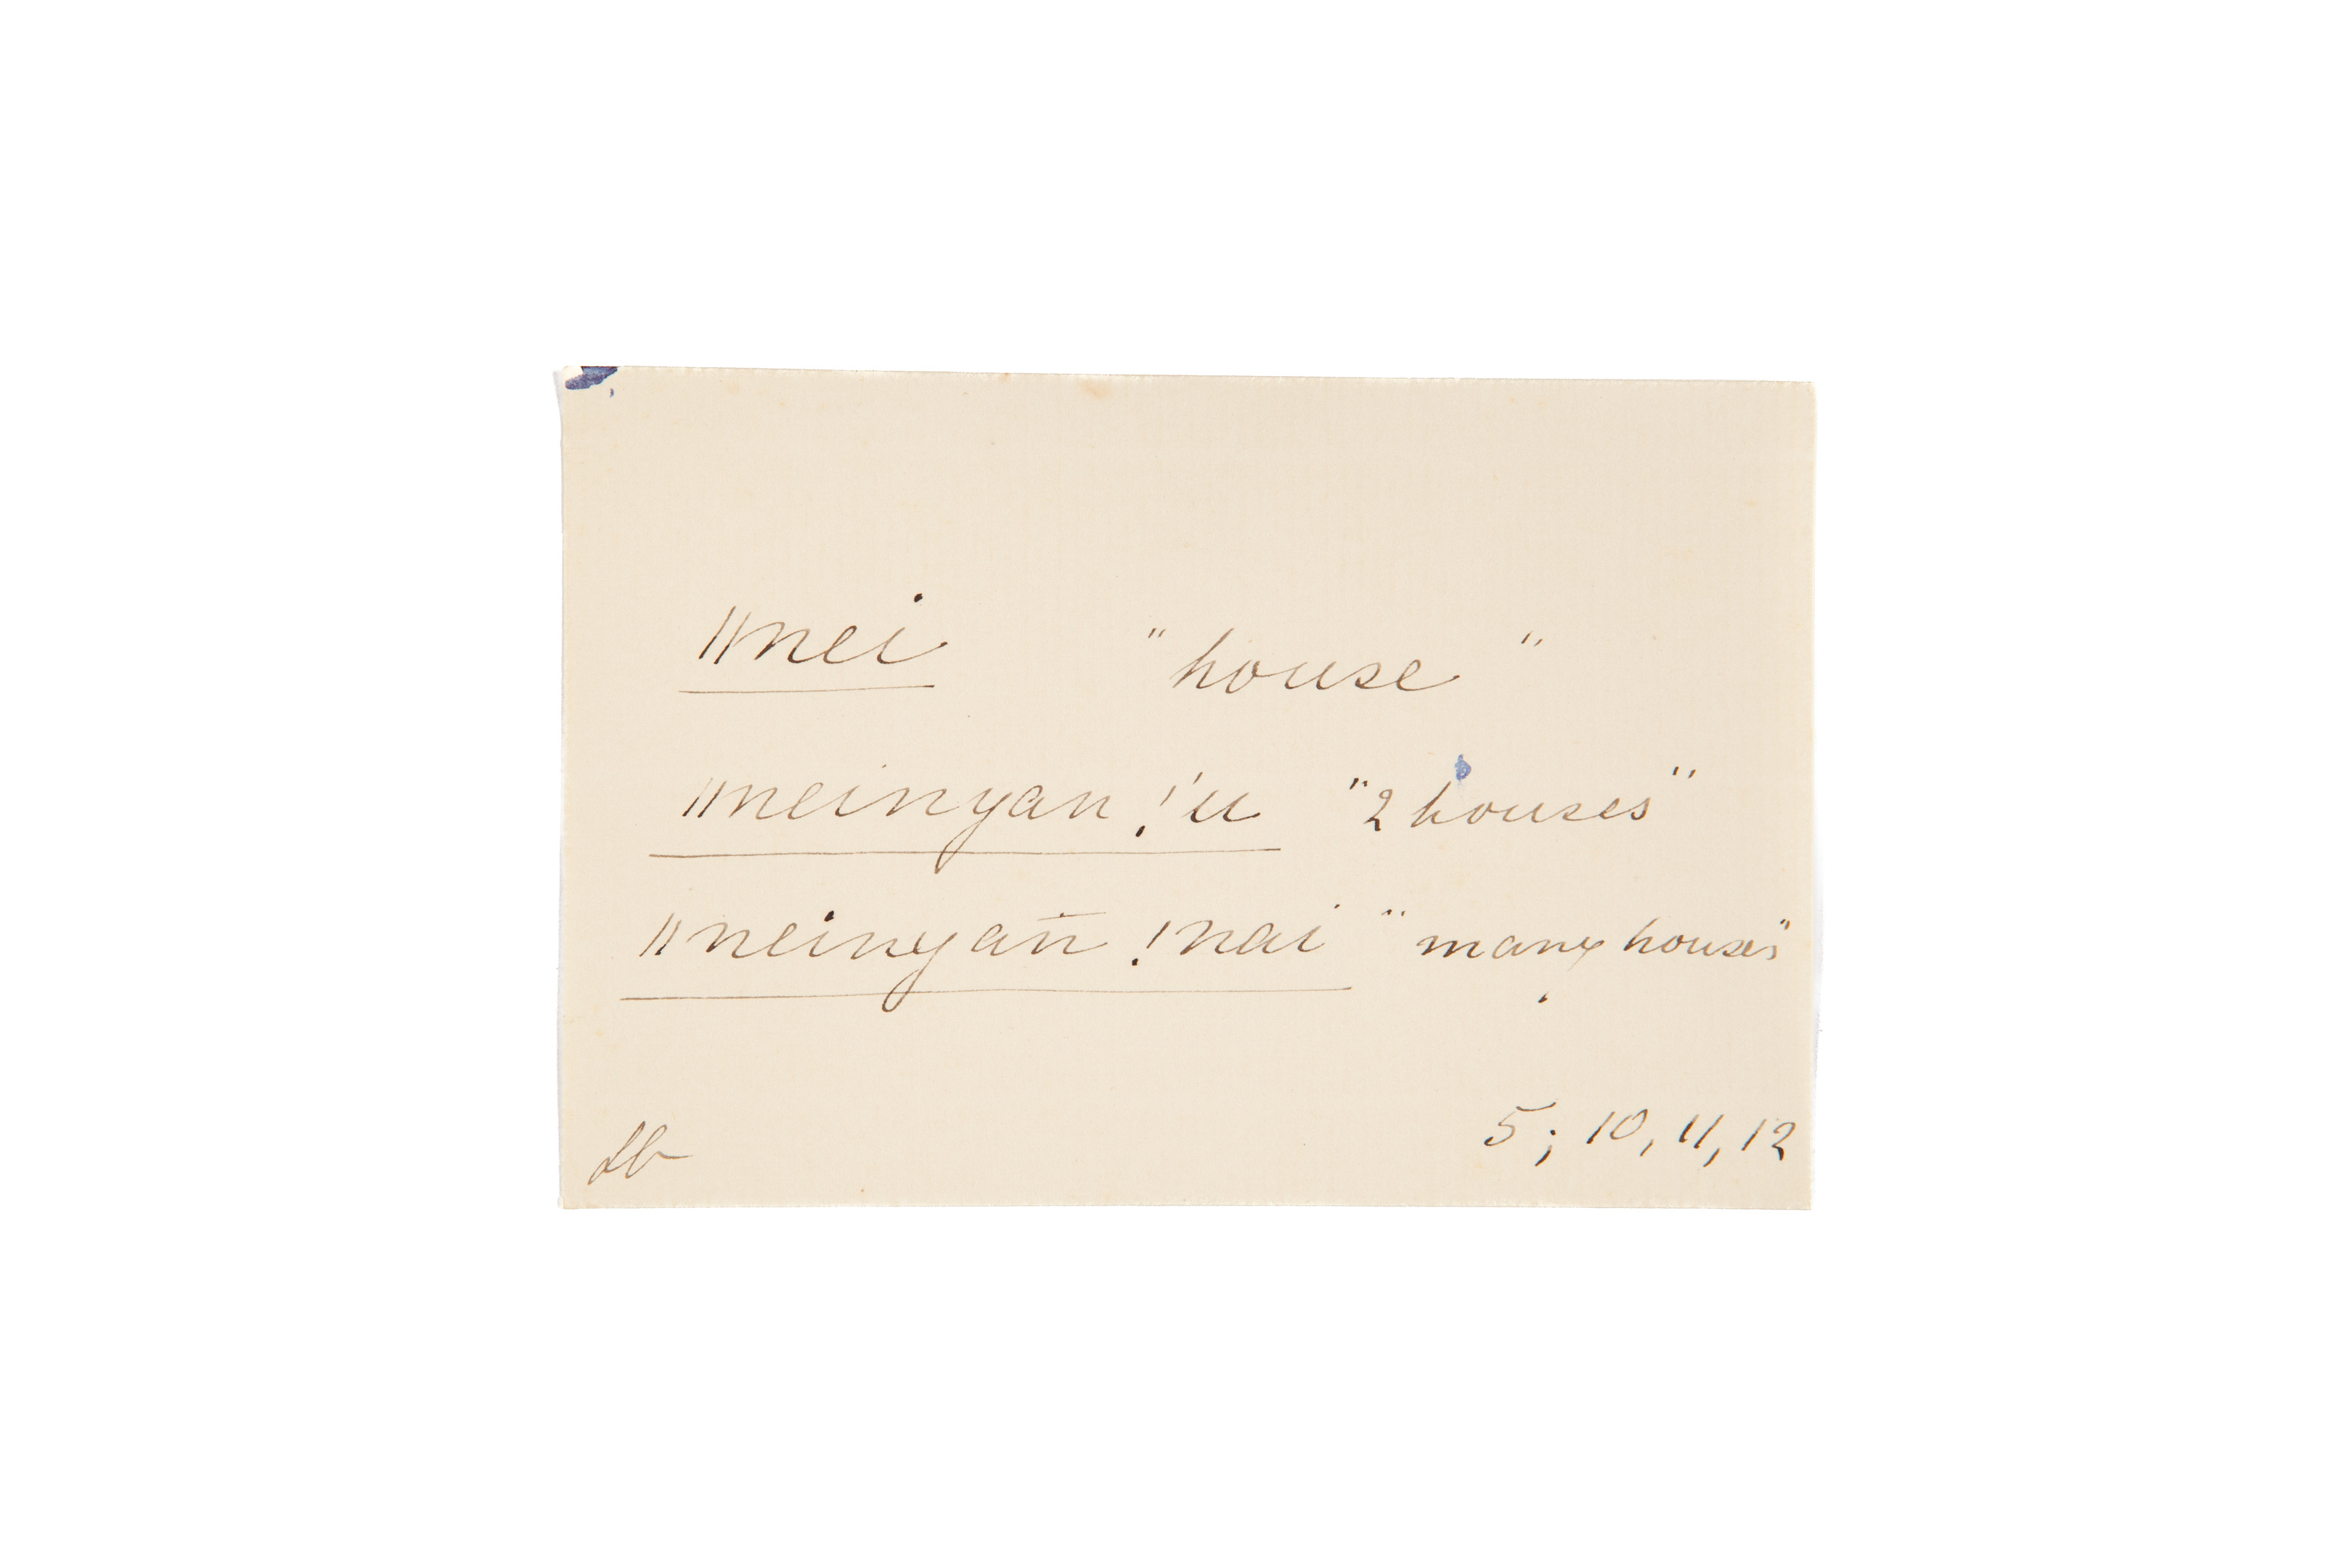 ǁnei "house"
ǁneinyan !'u "2 houses"
ǁneinyan̄ !nai "many houses"
Lb 5; 10, 11, 12